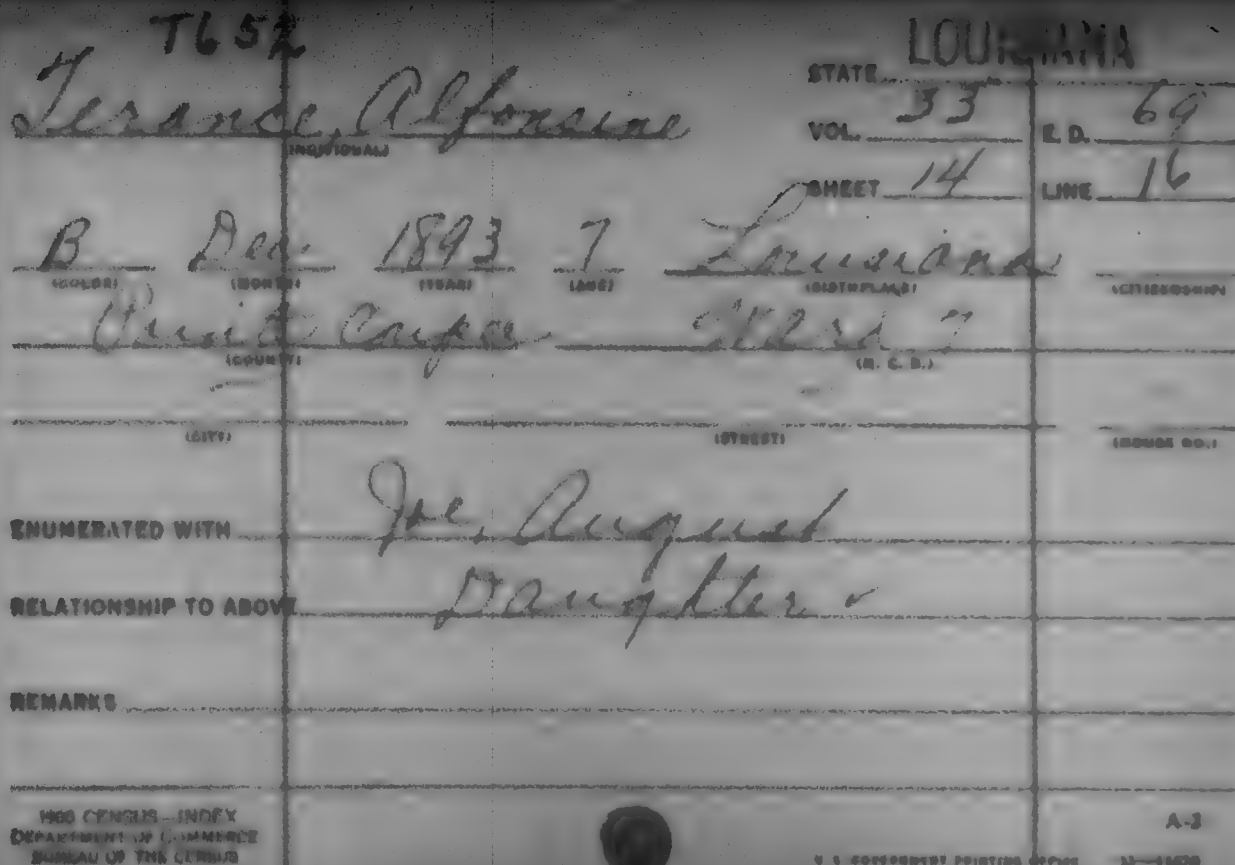 T652
LOUISIANA
STATE
Terance, Alfonsine
(INDIVIDUAL)
VOL. 33 E. D. 69
SHEET 14 LINE 16
B Dec. 1893 7 Louisiana
(COLOR) (MONTH) (YEAR) (AGE) (BIRTHPLACE) (CITIZENSHIP)
Pointe Coupee Ward 7
(COUNTY) (M. C. D.)
(CITY) (STREET) (HOUSE NO.)
ENUMERATED WITH Joe, August
RELATIONSHIP TO ABOVE Daughter ✓
REMARKS
1900 CENSUS—INDEX
DEPARTMENT OF COMMERCE
BUREAU OF THE CENSUS
A-3
U. S. GOVERNMENT PRINTING OFFICE